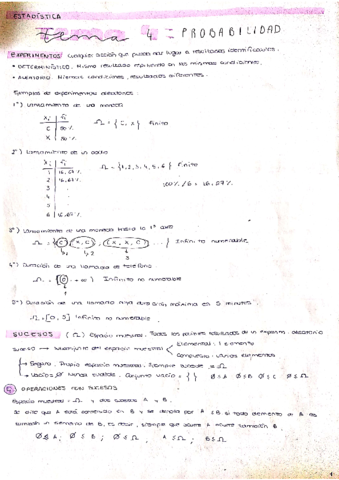 ESTADÍSTICA
Tema 4 = PROBABILIDAD
EXPERIMENTOS Cualquier acción que pueda dar lugar a resultados identificables.
• DETERMINÍSTICO. Mismo resultado repitiendo en las mismas condiciones.
• ALEATORIO. Mismas condiciones, resultados diferentes.
Ejemplos de experimentos aleatorios:
1º) Lanzamiento de una moneda
xi fi
C 50%
X 50%
Ω = {C, X} Finito
2º) Lanzamiento de un dado
xi fi
1 16,67%
2 16,67%
3
4
5
6 16,67%
Ω = {1, 2, 3, 4, 5, 6} Finito
100% / 6 = 16,67%
3º) Lanzamiento de una moneda hasta la 1ª cara
Ω = {(C), (X, C), (X, X, C) ...} Infinito numerable
1 2 3
4º) Duración de una llamada de teléfono
Ω = [0, +∞) Infinito no numerable
5º) Duración de una llamada cuya duración máxima es 5 minutos.
Ω = [0, 5] Infinito no numerable.
SUCESOS (Ω) Espacio muestral. Todos los posibles resultados de un experim. aleatorio
Suceso → Subconjunto del espacio muestral
Elemental: 1 elemento
Compuesto: varios elementos
Seguro. Propio espacio muestral. Siempre sucede = Ω
Vacío = Ø Nunca sucede. Conjunto vacío = { }
OPERACIONES CON SUCESOS
Espacio muestral = Ω y dos sucesos A y B.
Se dice que A está contenido en B y se denota por A ⊆ B si todo elemento de A es
también un elemento de B. Es decir, siempre que ocurre A ocurre también B.
Ø ⊆ A; Ø ⊆ B; Ø ⊆ Ω; A ⊆ Ω; B ⊆ Ω